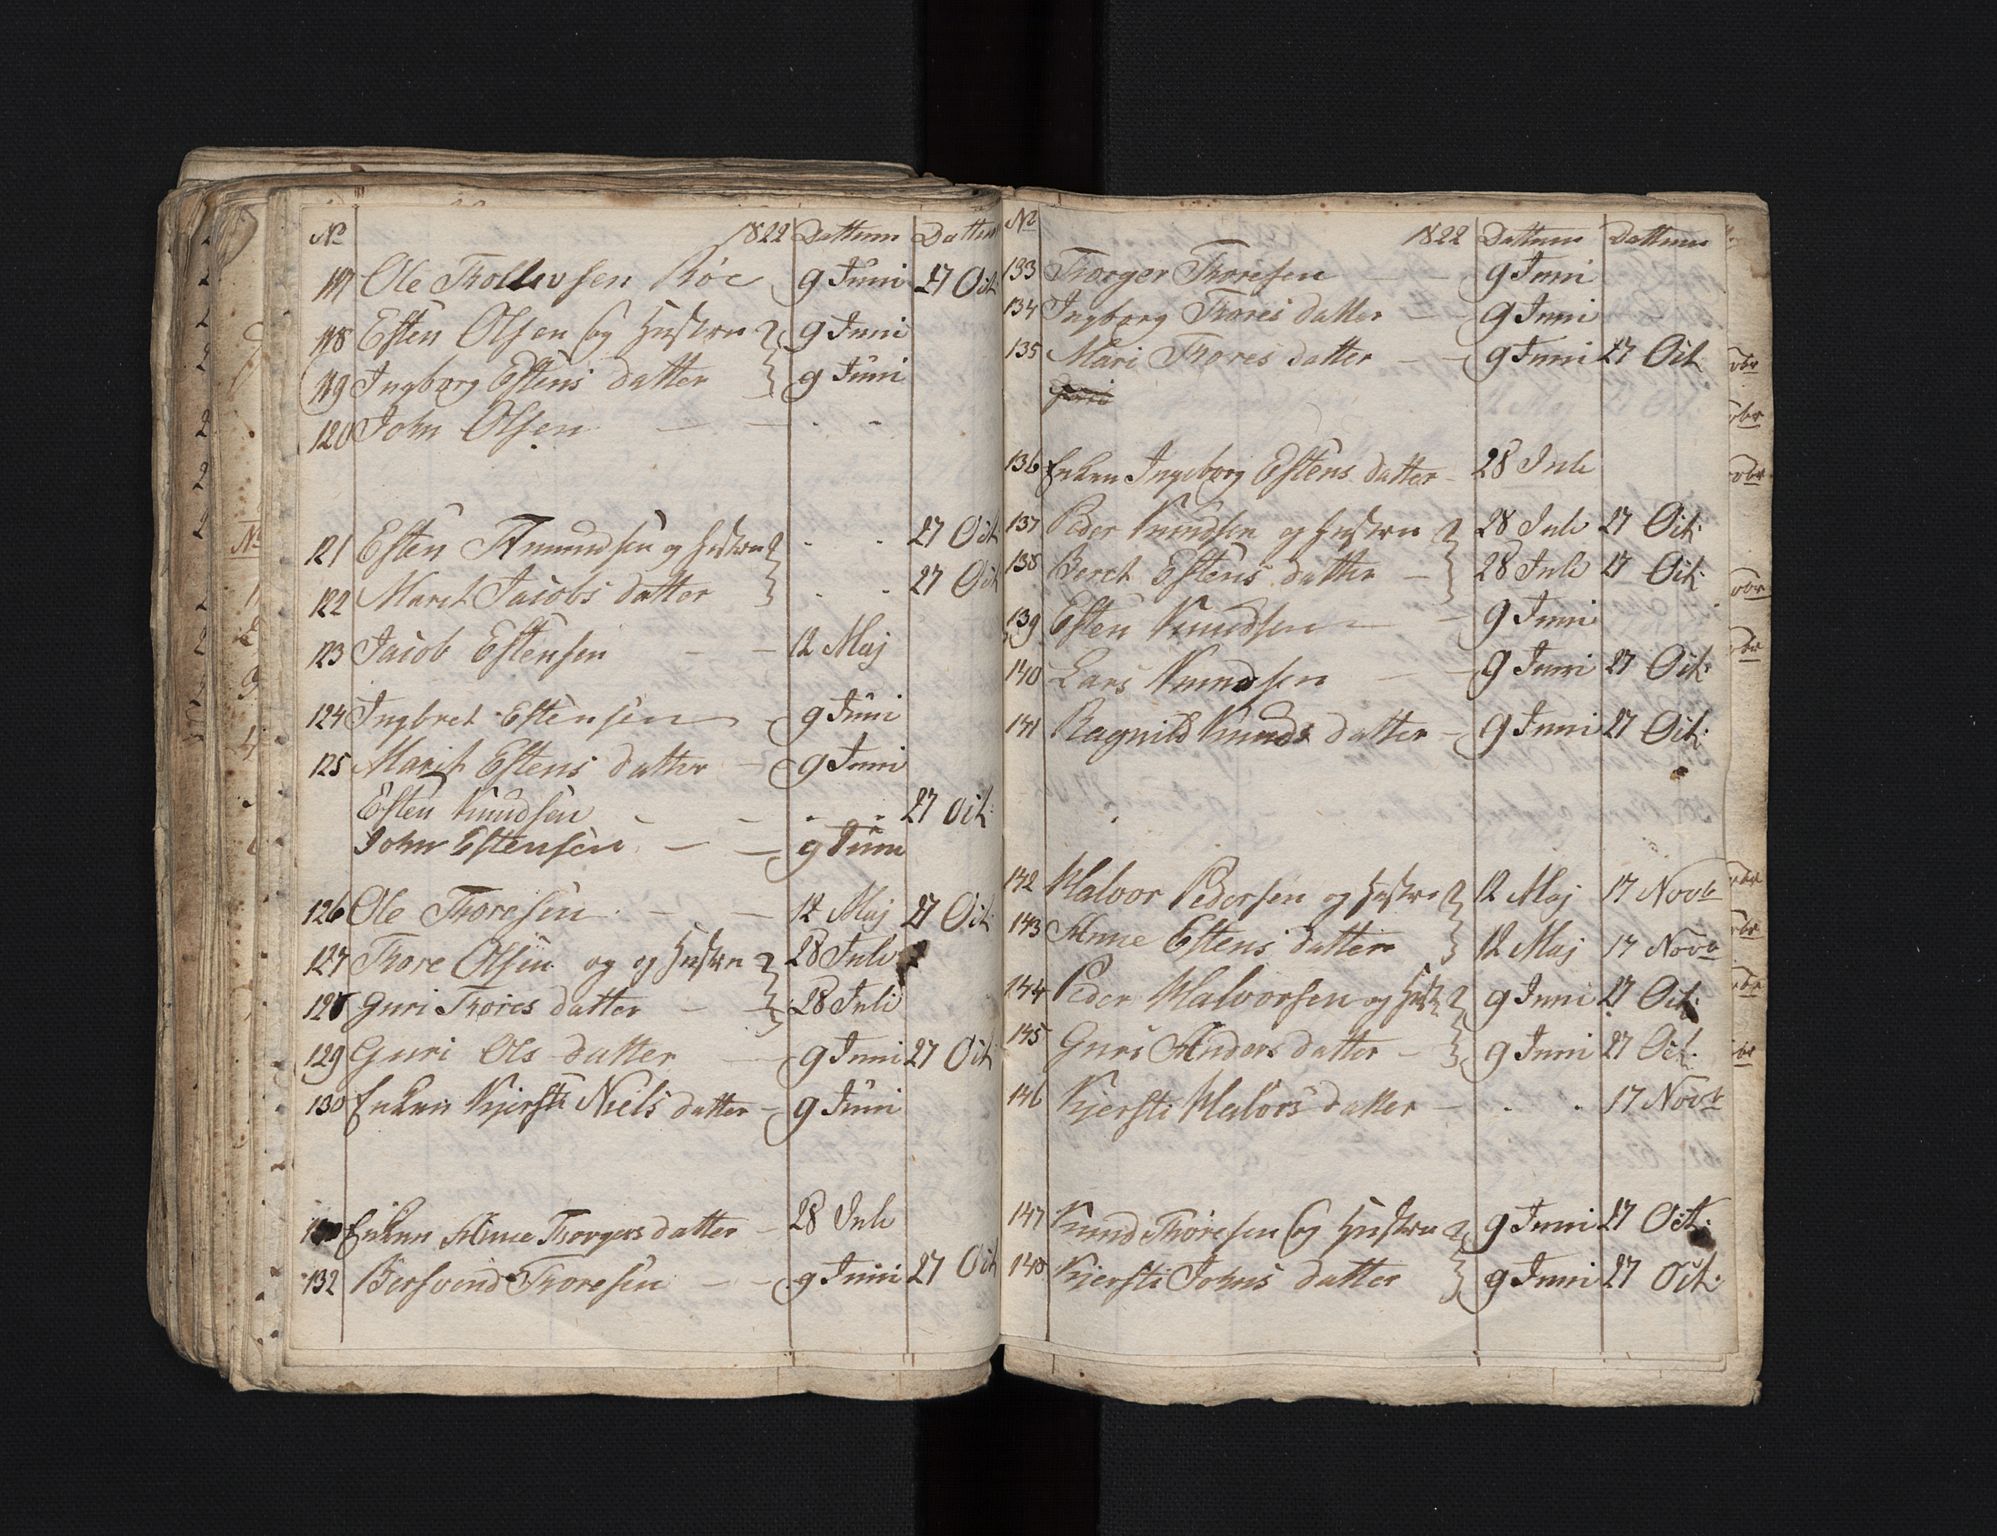 No 1822 Dattum Dattum
117 Ole Thollevsen Röe 9 Juni 27 Oct:
118 Esten Olsen og Hustru 9 Juni
119 Ingborg Estens datter 9 Juni
120 John Olsen — — . -
121 Esten Amundsen og Hustru . . 27 Oct
122 Marit Jacobs datter . . 27 Oct
123 Jacob Estensen — — 12 Maj
124 Ingbret Estensen — 9 Juni
125 Marit Estens datter — 9 Juni
Esten Knudsen - - . . 27 Oct:
John Estensen — — 9 Juni
126 Ole Thoresen — — 12 Maj 27 Oct:
127 Thore Olsen og og Hustru 28 Juli
128 Guri Thores datter — — 28 Juli
129 Guri Ols datter — 9 Juni 27 Oct:
130 Enken Kjersti Niels datter — 9 Juni
Enken Anne Thorgers datter — 28 Juli
132 Bersvend Thoresen — — 9 Juni 27 Oct
No 1822 Dattum Dattum
133 Thorger Thoresen — — 9 Juni
134 Ingborg Thores datter — — 9 Juni
135 Mari Thores datter — — 9 Juni 27 Oct
136 Enken Ingeborg Estens datter — 28 Juli
137 Peder Knudsen og Hustru 28 Juli 27 Oct:
138 Beret Estens datter — 28 Juli 27 Oct:
139 Esten Knudsen — — 9 Juni
140 Lars Knudsen — — 9 Juni 27 Oct:
141 Ragnild Knuds datter — 9 Juni 27 Oct:
142 Halvor Pedersen og Hustru 12 Maj 17 Novb
143 Anne Estens datter 12 Maj 17 Novb
144 Peder Halvorsen og Hust 9 Juni 27 Oct:
145 Guri Anders datter — 9 Juni 27 Oct:
146 Kjersti Halvors datter — . . 17 Novb
147 Knud Thoresen og Hustru 9 Juni 27 Oct:
148 Kjersti Johns datter 9 Juni 27 Oct: